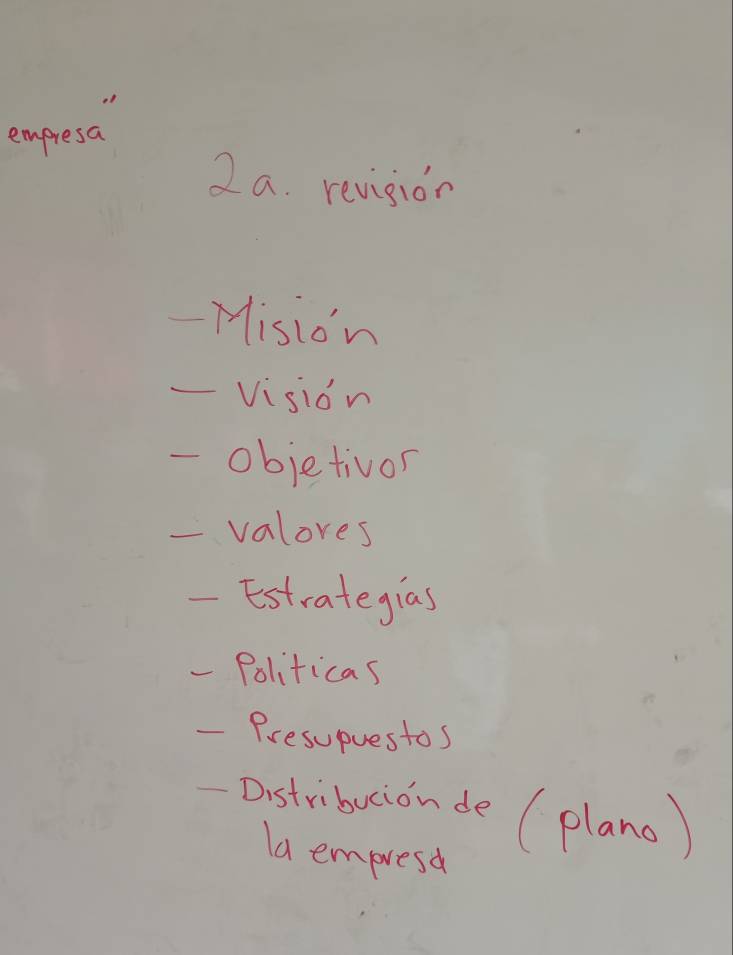 empresa"
2a. revisión
- Misión
- Visión
- Objetivos
- valores
- Estrategias
- Politicas
- Presupuestos
- Distribución de (plano)
la empresa